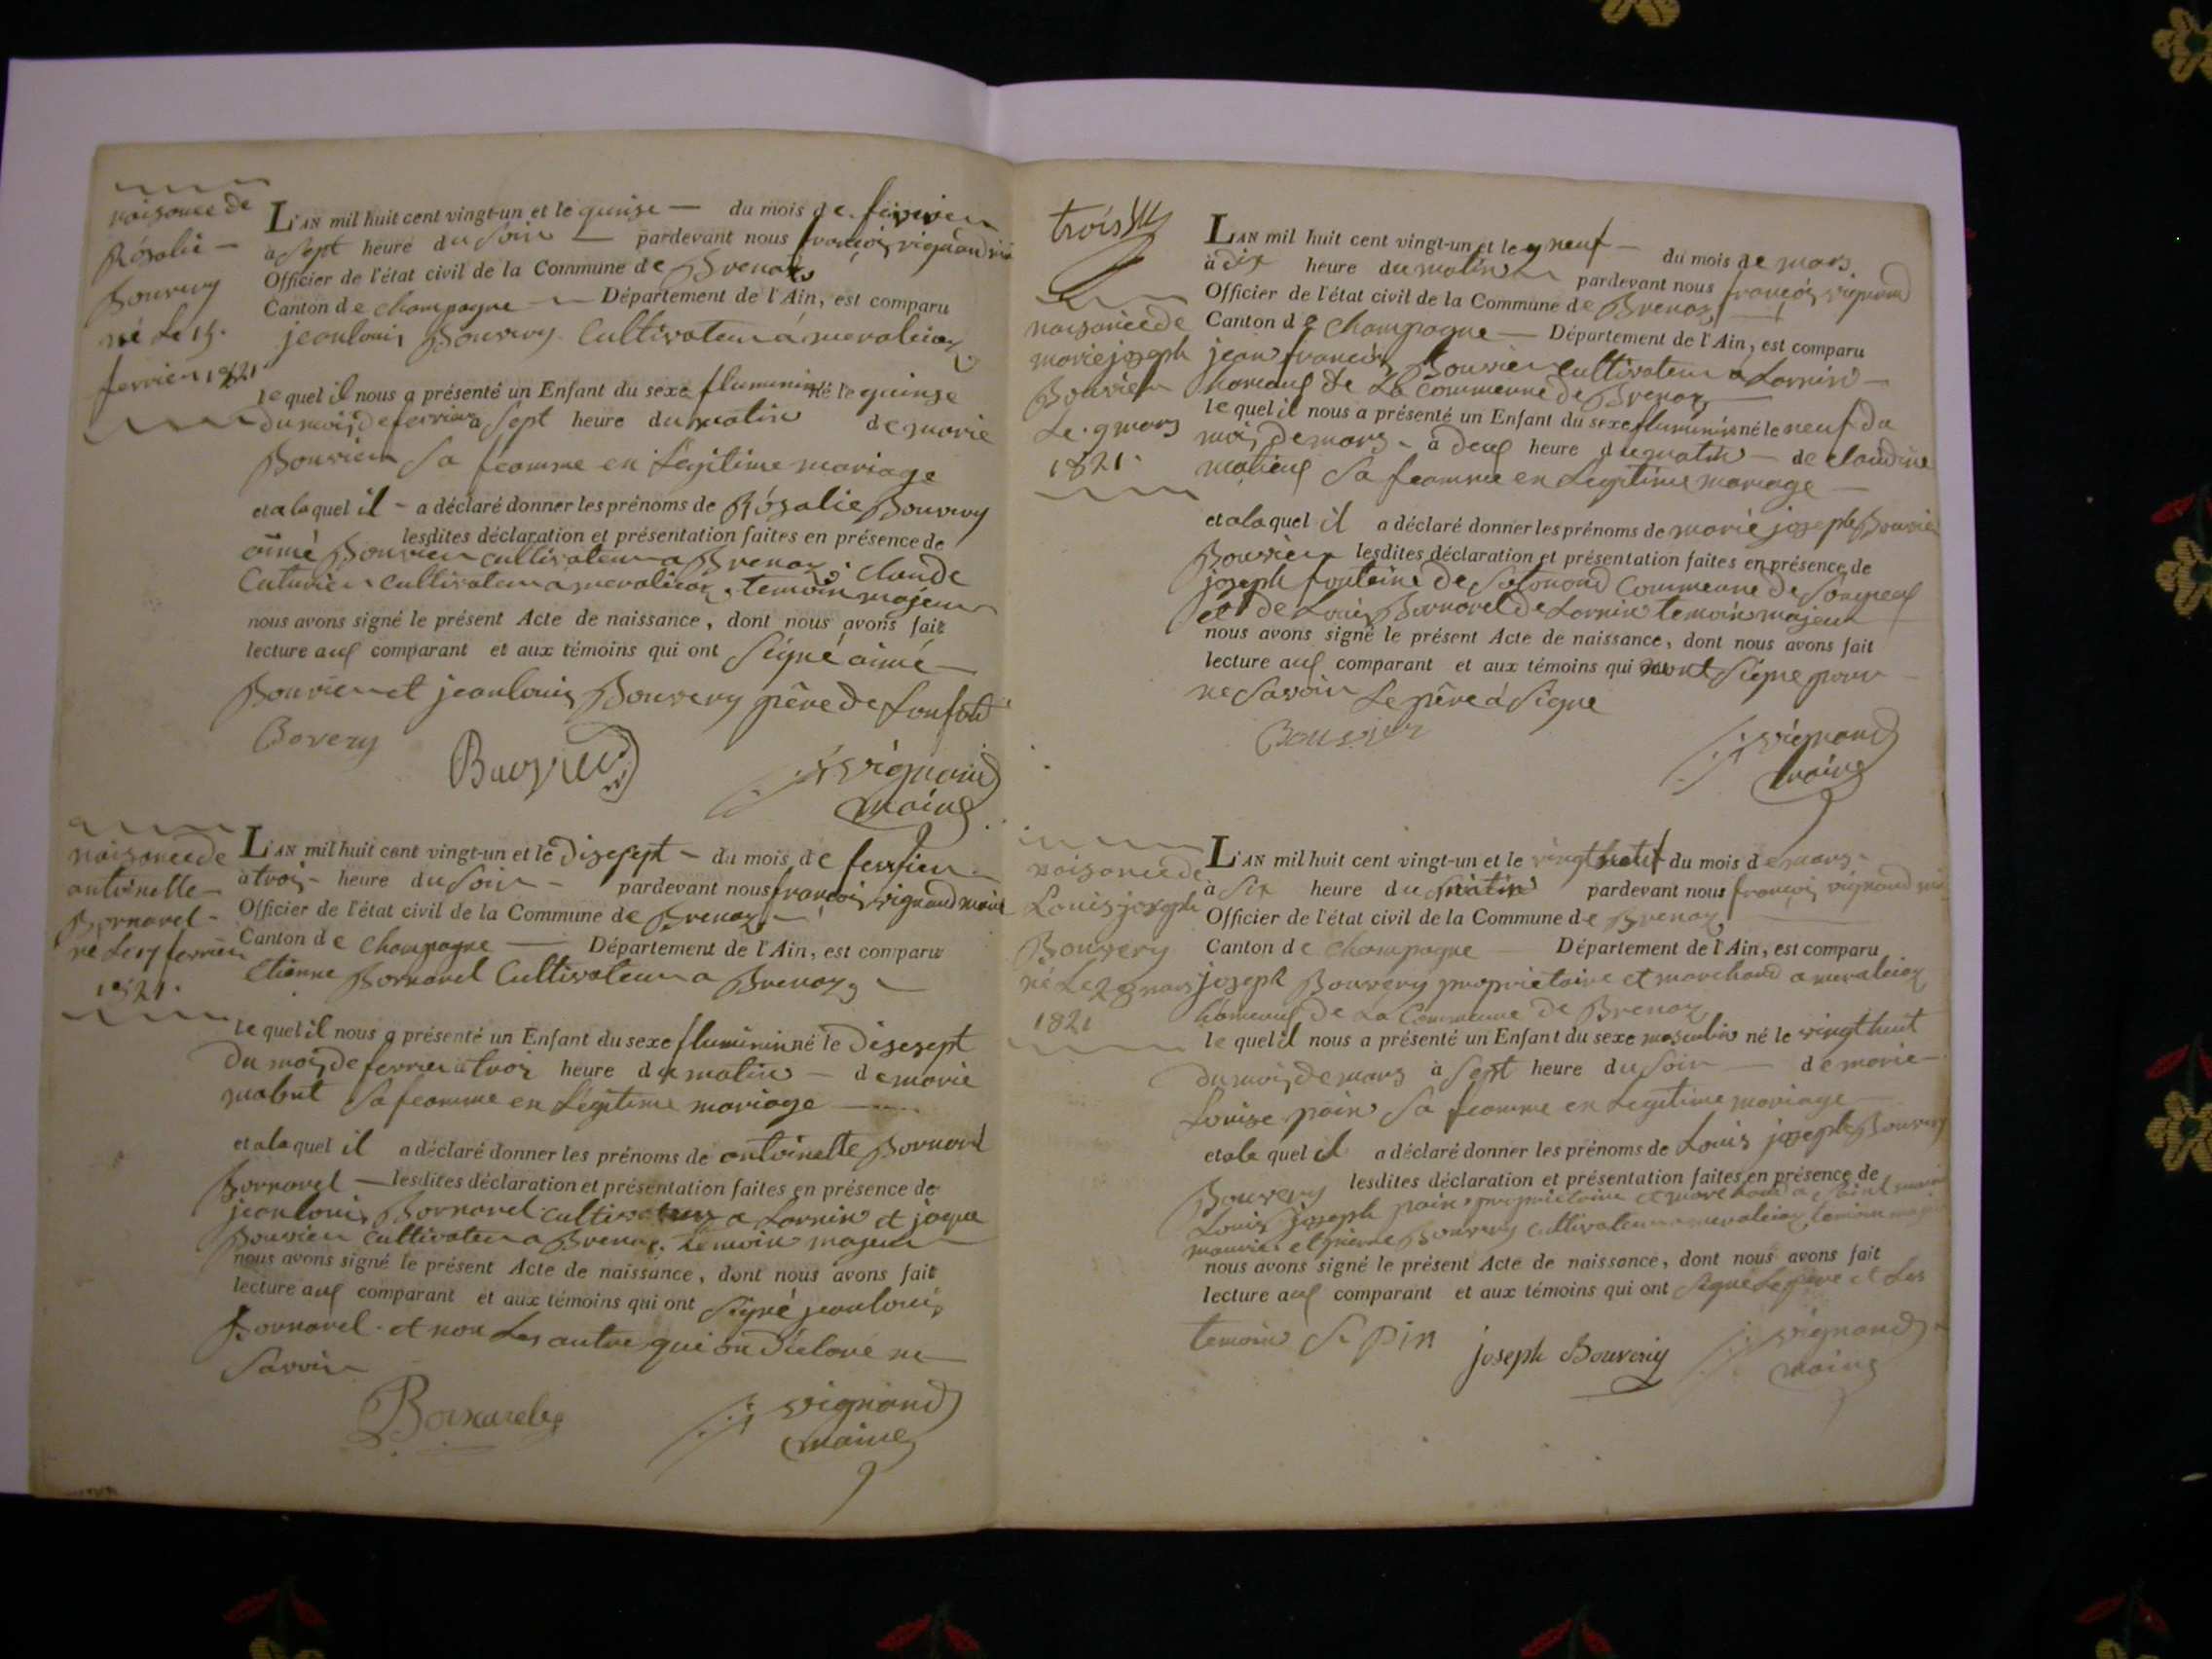 naisance de
Rosalie —
Bouvery
né Le 15.
fevrier 1821
L'AN mil huit cent vingt-un et le quinse — du mois de fevrier
à sept heure du soir — pardevant nous françois vignand
Officier de l'état civil de la Commune de Brenaz
Canton de champagne — Département de l'Ain, est comparu
jeanlouis Bouvery Cultivateur á meraleiaz
le quel il nous a présenté un Enfant du sexe fluminin né le quinse
du mois de fevrier a sept heure du matin de marie
Bouvier sa feamme en Legitime mariage
et a la quel il – a déclaré donner les prénoms de Rósalie Bouvery
lesdites déclaration et présentation faites en présence de
aimé Bouvier cultivateur a Brenaz, claude
cultivateur a meraleiaz, temoin majeur
nous avons signé le présent Acte de naissance, dont nous avons fait
lecture aux comparant et aux témoins qui ont Signé aimé —
Bouvier et jeanlouis Bouvery père de Lenfand
Bovery
Bouvier
vignand
maire
naisance de
antoinelle —
Bornarel –
né Le 17 fevrier
1821.
L'AN mil huit cent vingt-un et le disesept – du mois de fevrier
à trois – heure du soir – pardevant nous françois vignand maire
Officier de l'état civil de la Commune de Brenaz
Canton de Champagne — Département de l'Ain, est comparu
Etienne Bornarel Cultivateur a Brenaz
le quel il nous a présenté un Enfant du sexe fluminin né le disesept
du mois de fevrier à trois heure du matin — de marie
mabut sa feamme en Legitime mariage —
et a la quel il a déclaré donner les prénoms de antoinette Bornarel
Bornarel — lesdites déclaration et présentation faites en présence de
jeanlouis Bornarel cultivateur a Lornin et jaque
Bouvier cultivateur a Brenaz, temoin majeur
nous avons signé le présent Acte de naissance, dont nous avons fait
lecture aux comparant et aux témoins qui ont signé jeanlouis
Bornarel et non Les autre qui on déclaré ne
savoir
Bornarel
vignand
maire
trois
naisance de
marie joseph
Bouvier
Le 9 mars
1821.
L'AN mil huit cent vingt-un et le 9 neuf — du mois de mars
à dix heure du matin pardevant nous françois vignand
Officier de l'état civil de la Commune de Brenaz
Canton de Champagne — Département de l'Ain, est comparu
jean francois Bouvier cultivateur a Lornin —
hameaux de La commune de Brenaz
le quel il nous a présenté un Enfant du sexe fluminin né le neuf du
mois de mars – à deux heure du matin — de claudine
sa feamme en Legitime mariage —
et a la quel il a déclaré donner les prénoms de marie joseph Bouvier
Bouvier lesdites déclaration et présentation faites en présence de
joseph fontaine de commune de Songieux
et de Louis Bornarel de Lornin temoin majeur
nous avons signé le présent Acte de naissance, dont nous avons fait
lecture aux comparant et aux témoins qui nont Signe pour
ne savoir Le père á Signe
Bouvier
vignand
maire
naisance de
Louis joseph
Bouvery
né Le 28 mars
1821
L'AN mil huit cent vingt-un et le vingt neuf du mois de mars –
à six heure du matin pardevant nous françois vignand
Officier de l'état civil de la Commune de Brenaz
Canton de Champagne Département de l'Ain, est comparu
joseph Bouvery proprietaire et marchand a meraleiaz
hameaux de La Commune de Brenaz
le quel il nous a présenté un Enfant du sexe masculin né le vingt huit
du mois de mars à sept heure du soir — de marie —
Louise pain sa feamme en Legitime mariage —
et a la quel il a déclaré donner les prénoms de Louis joseph Bouvery
Bouvery lesdites déclaration et présentation faites en présence de
Louis joseph pain proprietaire et marchand a saint
maurice et pierre Bouvery cultivateur a meraleiaz, temoin
nous avons signé le présent Acte de naissance, dont nous avons fait
lecture aux comparant et aux témoins qui ont signé Le père et Les
temoin
pin
joseph Bouveriy
vignand
maire